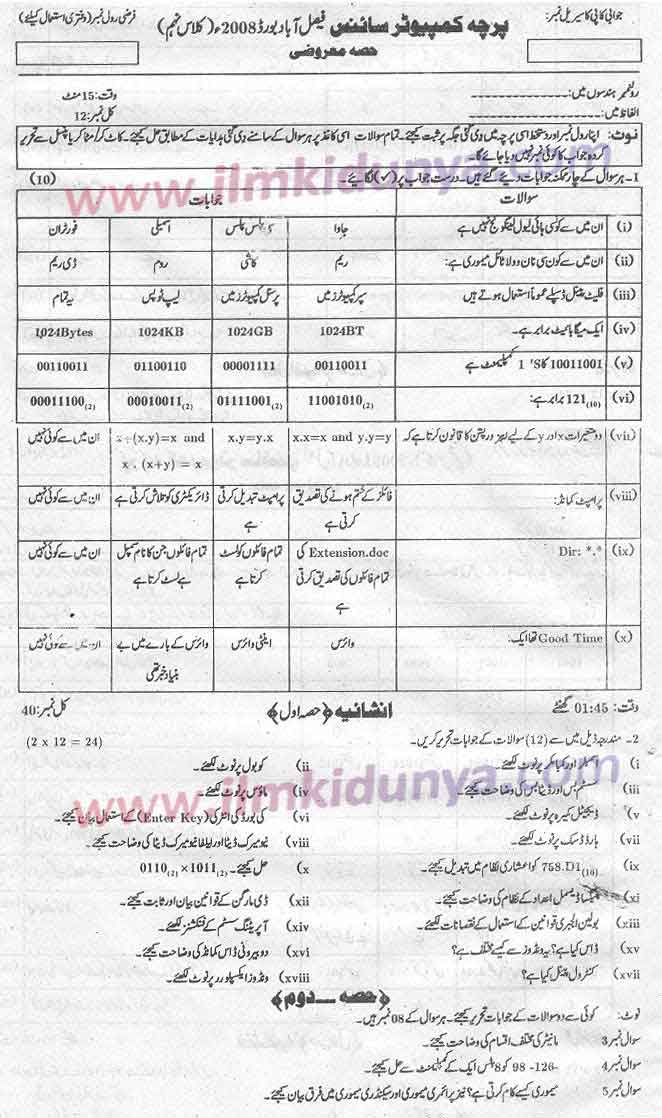 جوابی کاپی کا سیریل نمبر:
پرچہ کمپیوٹر سائنس فیصل آباد بورڈ 2008ء (کلاس نہم)
فرضی رول نمبر (دفتری استعمال کیلئے)
حصہ معروضی
رولنمبر ہندسوں میں:
وقت: 15 منٹ
الفاظ میں:
کل نمبر: 12
نوٹ: اپنا رول نمبر اور دستخط اسی پرچہ میں دی گئی جگہ پر ثبت کیجئے۔ تمام سوالات اسی کاغذ پر ہر سوال کے سامنے دی گئی ہدایات کے مطابق حل کیجئے۔ کاٹ کر/مٹا کر یا پنسل سے تحریر
کردہ جواب کا کوئی نمبر نہیں دیا جائے گا۔
1۔ ہر سوال کے چار ممکنہ جوابات دیئے گئے ہیں۔ درست جواب پر (✓) لگائیے (10)
www.ilmkidunya.com
سوالات جوابات
(i) ان میں سے کونسی ہائی لیول لینگوئج نہیں ہے جاوا پلس پلس اسمبلی فورٹران
(ii) ان میں سے کون سی نان وولاٹائل میموری ہے: ریم کاشی روم ڈی ریم
(iii) فلیٹ پینل ڈسپلے عموماً استعمال ہوتے ہیں سپر کمپیوٹرز میں پرسنل کمپیوٹرز میں لیپ ٹوپس یہ تمام
(iv) ایک میگا بائیٹ برابر ہے۔ 1024BT 1024GB 1024KB 1024Bytes
(v) 10011001 کا 1 'S کمپلیمنٹ ہے 00110011 00001111 01100110 00110011
(vi) 121(10) برابر ہے: 11001010(2) 01111001(2) 00010011(2) 00011100(2)
(vii) دو متغیرات x اور y کے لیے ابزورپشن کا قانون کرتا ہے کہ x.x=x and y.y=y x.y=y.x x+(x.y)=x and ان میں سے کوئی نہیں
x . (x+y) = x
(viii) پرامپٹ کمانڈ: فائلز کے ختم ہونے کی تصدیق پرامپٹ تبدیل کرتی ڈائریکٹری کو تلاش کرتی ہے ان میں سے کوئی نہیں
کرتی ہے ہے
(ix) Dir: *.* Extension.doc کی تمام فائلوں کو لسٹ تمام فائلوں جن کا نام سمپل ان میں سے کوئی نہیں
تمام فائلوں کی تصدیق کرتی کرتا ہے ہے لسٹ کرتا ہے
ہے
(x) Good Time تھا ایک: وائرس اینٹی وائرس وائرس کے بارے میں بے ان میں سے کوئی نہیں
بنیاد خبر تھی
وقت: 01:45 گھنٹے
انشائیہ (حصہ اول)
کل نمبر: 40
2۔ مندرجہ ذیل میں سے (12) سوالات کے جوابات تحریر کریں۔ (2 x 12 = 24)
i اسمبلر اور کمپائلر پر نوٹ لکھئے۔ ii کوبول پر نوٹ لکھئے۔
www.ilmkidunya.com
iii سسٹم بس اور ڈیٹا بس کی وضاحت کیجئے۔ iv ماؤس پر نوٹ لکھئے۔
v ڈیجیٹل کیمرہ پر نوٹ لکھئے۔ vi کی بورڈ کی انٹر کی (Enter Key) کے استعمال بیان کیجئے۔
vii ہارڈ ڈسک پر نوٹ لکھئے۔ viii نیومیرک ڈیٹا اور ایلفا نیومیرک ڈیٹا کی وضاحت کیجئے۔
ix 758.D1(16) کو اعشاری نظام میں تبدیل کیجئے۔ x حل کیجئے۔ 0110(2)×1011(2)
xi ہیگزا ڈیسیمل اعداد کے نظام کی وضاحت کیجئے۔ xii ڈی مارگن کے قوانین بیان اور ثابت کیجئے۔
xiii بولین الجبرا قوانین کے استعمال کے نقصانات لکھئے۔ xiv آپریٹنگ سسٹم کے فنکشنز لکھئے۔
xv ڈاس کیا ہے؟ یہ ونڈوز سے کیسے مختلف ہے؟ xvi دو بیرونی ڈاس کمانڈ کی وضاحت کیجئے۔
xvii کنٹرول پینل کیا ہے؟ xviii ونڈوز ایکسپلورر پر نوٹ لکھئے۔
(حصہ ــ دوم)
نوٹ: کوئی سے دو سوالات کے جوابات تحریر کیجئے۔ ہر سوال کے 08 نمبر ہیں۔
سوال نمبر 3 مانیٹر کی مختلف اقسام کی وضاحت کیجئے۔
سوال نمبر 4 -126- 98 کو 8 بٹس ایک کے کمپلیمنٹ سے حل کیجئے۔
سوال نمبر 5 میموری کیسے کام کرتی ہے؟ نیز پرائمری میموری اور سیکنڈری میموری میں فرق بیان کیجئے۔